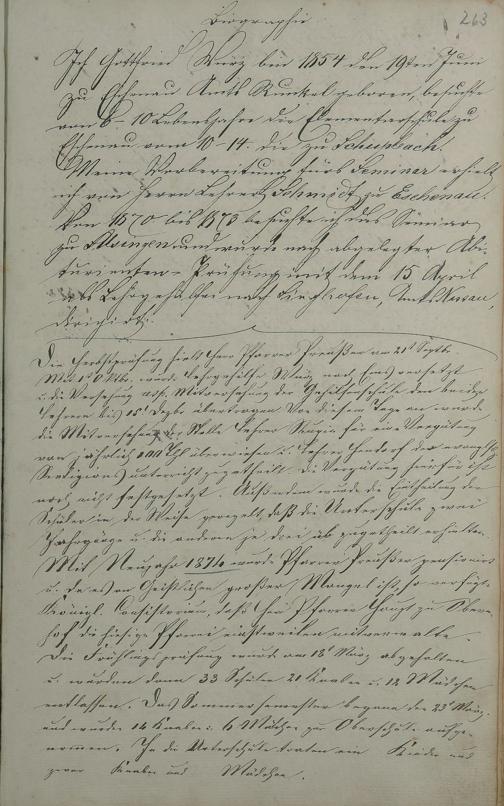 Biographie
263
Ich Gottfried Würz bin 1854 den 19ten Juni
zu Eschenau Amts Runkel geboren, besuchte
vom 6-10 Lebensjahre die Elementarschule zu
Eschenau vom 10-14. die zu Schupbach.
Meine Vorbereitung fürs Seminar erhielt
ich von Herrn Lehrer Schmidt zu Eschenau.
Von 1870 bis 1873 besuchte ich das Seminar
zu Usingen und wurde nach abgelegter Abi-
turienten-Prüfung mit dem 15 April
als Lehrgehülfe nach Singhofen, Amts Nassau,
dirigirt.
Die Herbstprüfung hielt Herr Pfarrer Preußer am 21t Septb.
Mit 1t Oktbr. wurde Lehrgehilfe Würz nach versetzt
u. die Versehung resp. Mitversehung der Gehilfenschule den beiden
Lehrern bis 15t Dezbr. übertragen. Von diesem Tage an wurde
die Mitversehung der Stelle Lehrer für eine Vergütung
von jährlich 100 überwiesen u. Lehrer der evangl.
Religionsunterricht zugetheilt. Die Vergütung hierfür ist
noch nicht festgesetzt. Außerdem wurde die Eintheilung der
Schüler in der Weise geregelt, daß die Unterschule zwei
Jahrgänge u. die anderen je drei zugetheilt erhielten.
Mit Neujahr 1874 wurde Pfarrer Preußer pensionirt
u. da es an Geistlichen großer Mangel ist, so verfügte
Königl. Consistorium, daß Herr Pfarrer Haupt zu Obern-
hof die hiesige Pfarrei einstweilen mitverwalte.
Die Frühlingsprüfung wurde am 18t März abgehalten
u. wurden dann 33 Schüler 21 Knaben u. 12 Mädchen
entlassen. Das Sommersemester begann den 23t März,
und wurden 14 Knaben u. 6 Mädchen zur Oberschule aufge-
nommen. In die Unterschule traten ein Kinder und
zwar Knaben und Mädchen.